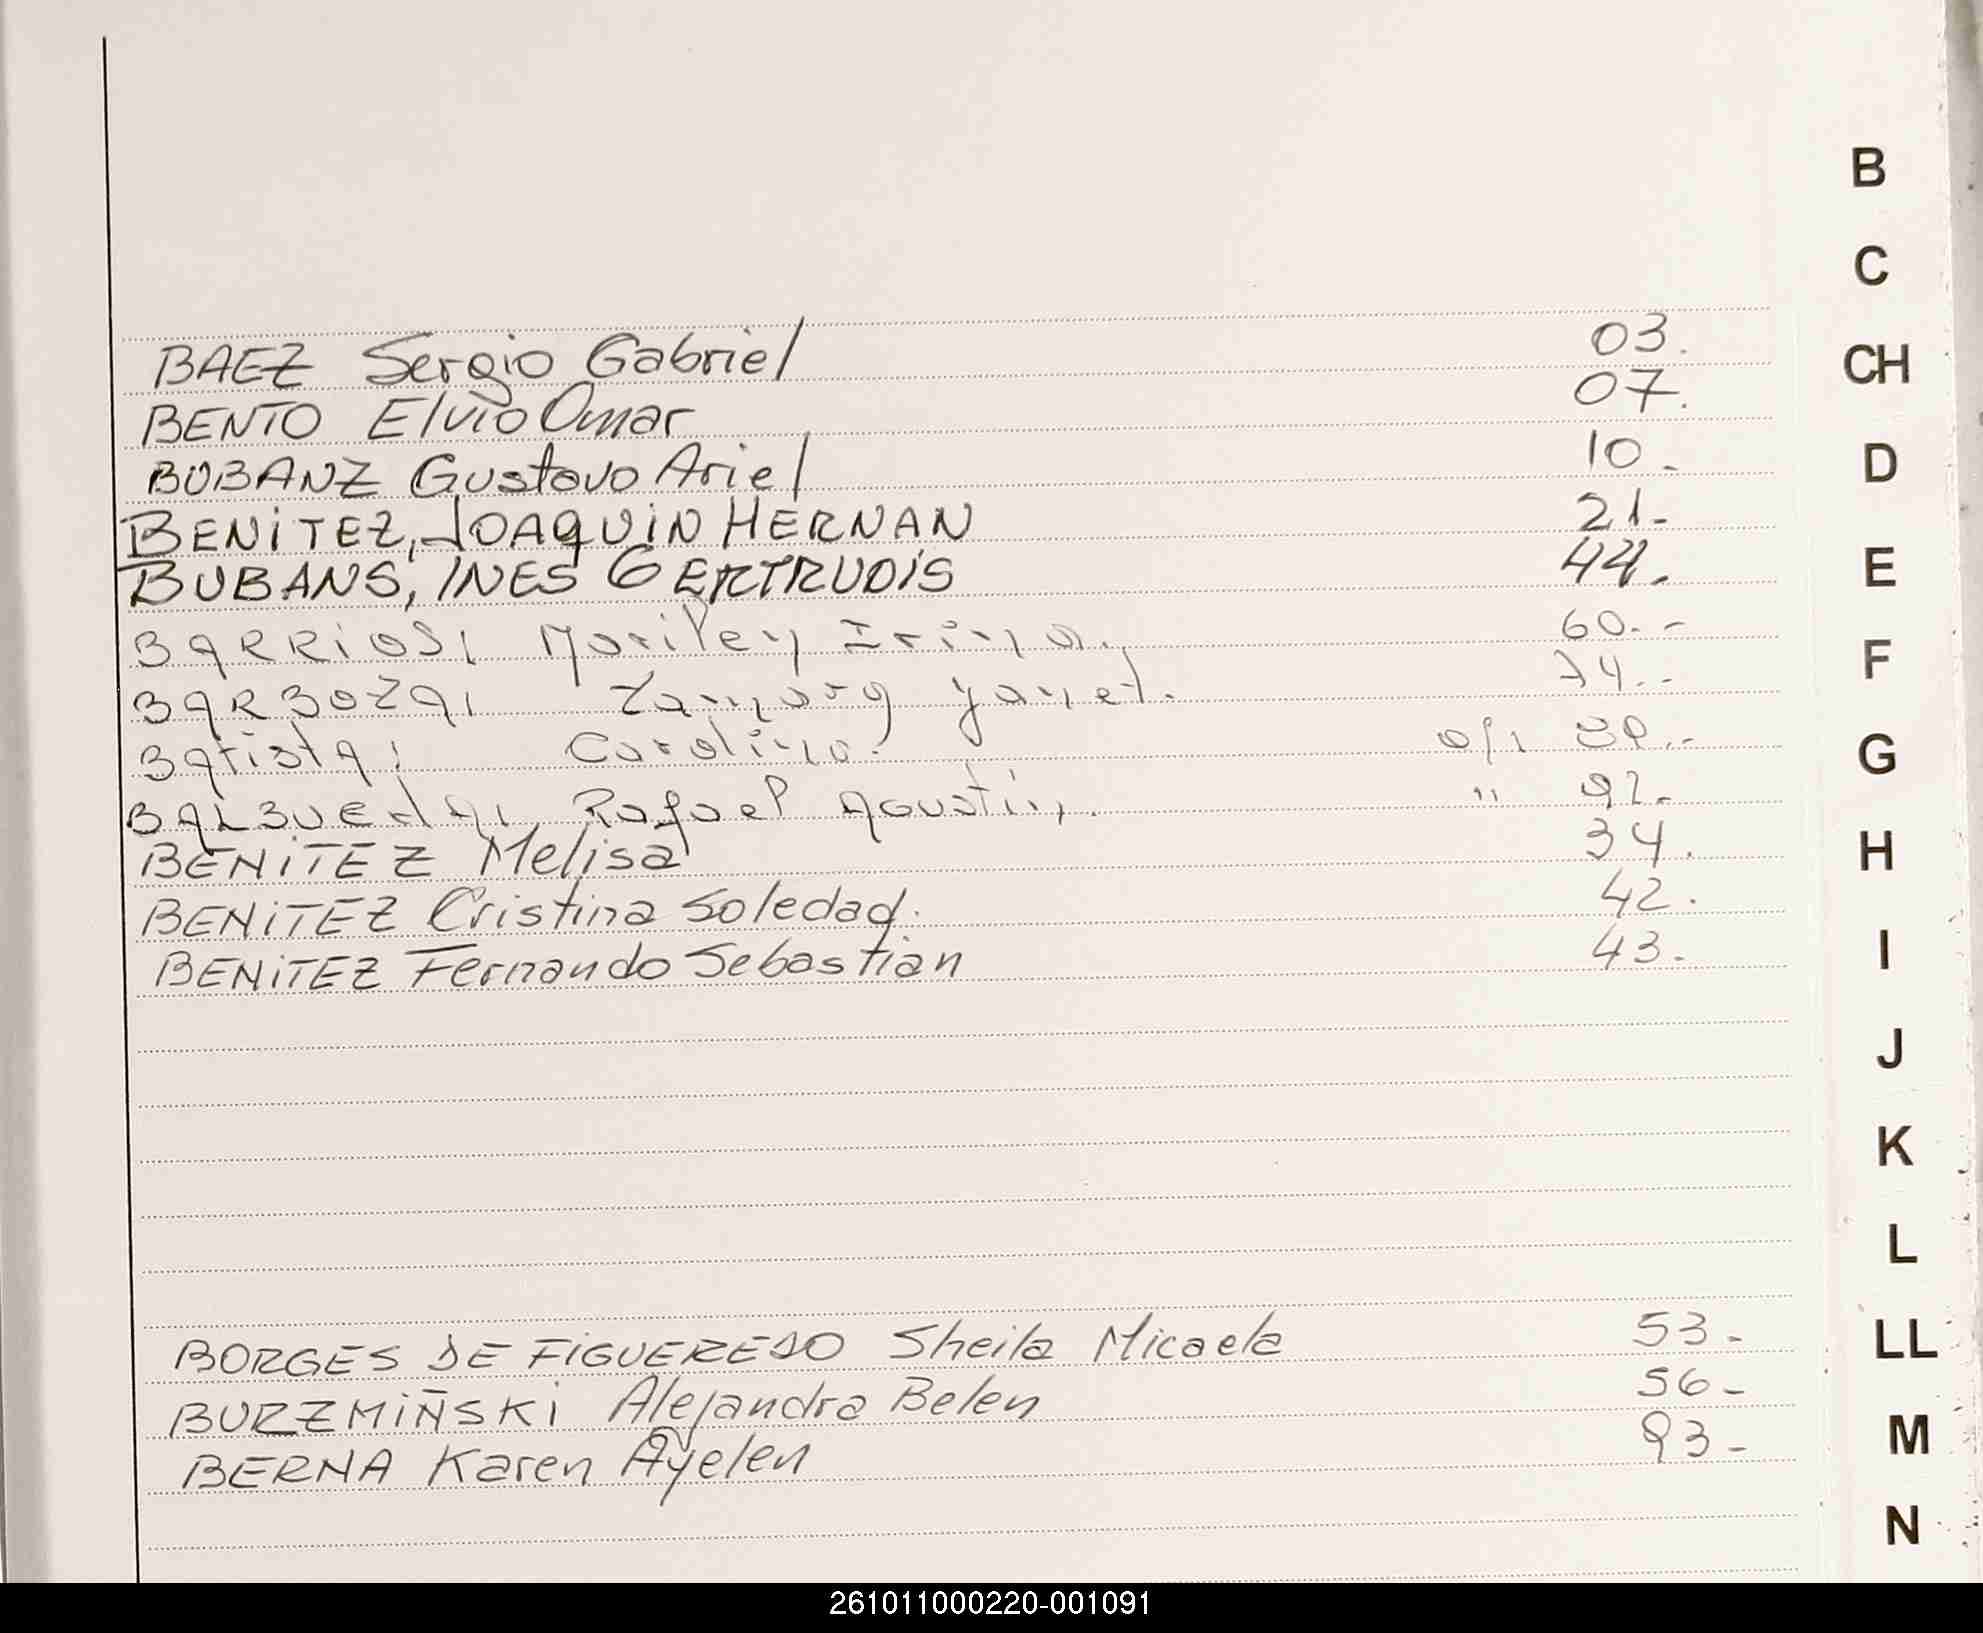 B
C
BAEZ Sergio Gabriel 03.
CH
BENTO Elvio Omar 07.
BUBANZ Gustavo Ariel 10.
D
BENITEZ, JOAQUIN HERNAN 21.
BUBANS, INES GERTRUDIS 44.
E
BARRIOS, Mariley Irina. 60.-
F
BARBOZA, Tamara Yanet. 74.-
Batista, Carolina.
G
BALBUEDA, Rafael Agustin. " 92.
BENITEZ Melisa 34.
H
BENITEZ Cristina Soledad. 42.
BENITEZ Fernando Sebastian 43.
I
J
K
L
BORGES DE FIGUEREDO Sheila Micaela 53-
LL
BURZMIÑSKI Alejandra Belen 56-
M
BERNA Karen Ayelen 93-
N
261011000220-001091